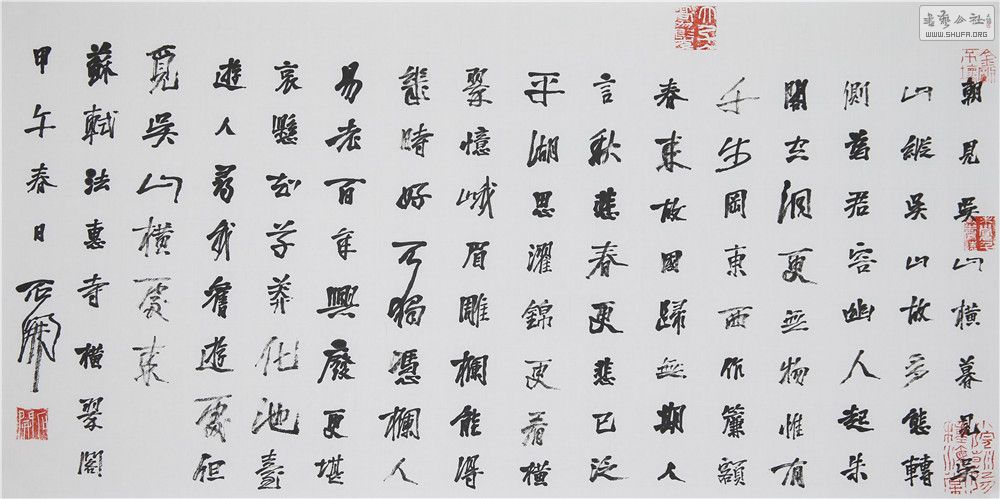 朝見吳山橫暮見吳
山縱吳山故多態轉
側爲君容幽人起朱
閣空洞更無物惟有
千步岡東西作簾額
春來故國歸無期人
言秋悲春更悲已泛
平湖思濯錦更看橫
翠憶峨眉雕欄能得
幾時好不獨憑欄人
易老百年興廢更堪
哀懸知草莽化池臺
遊人尋我舊遊處但
覓吳山橫處來
蘇軾法惠寺橫翠閣
甲午春日石開
書藝公社
WWW.SHUFA.ORG